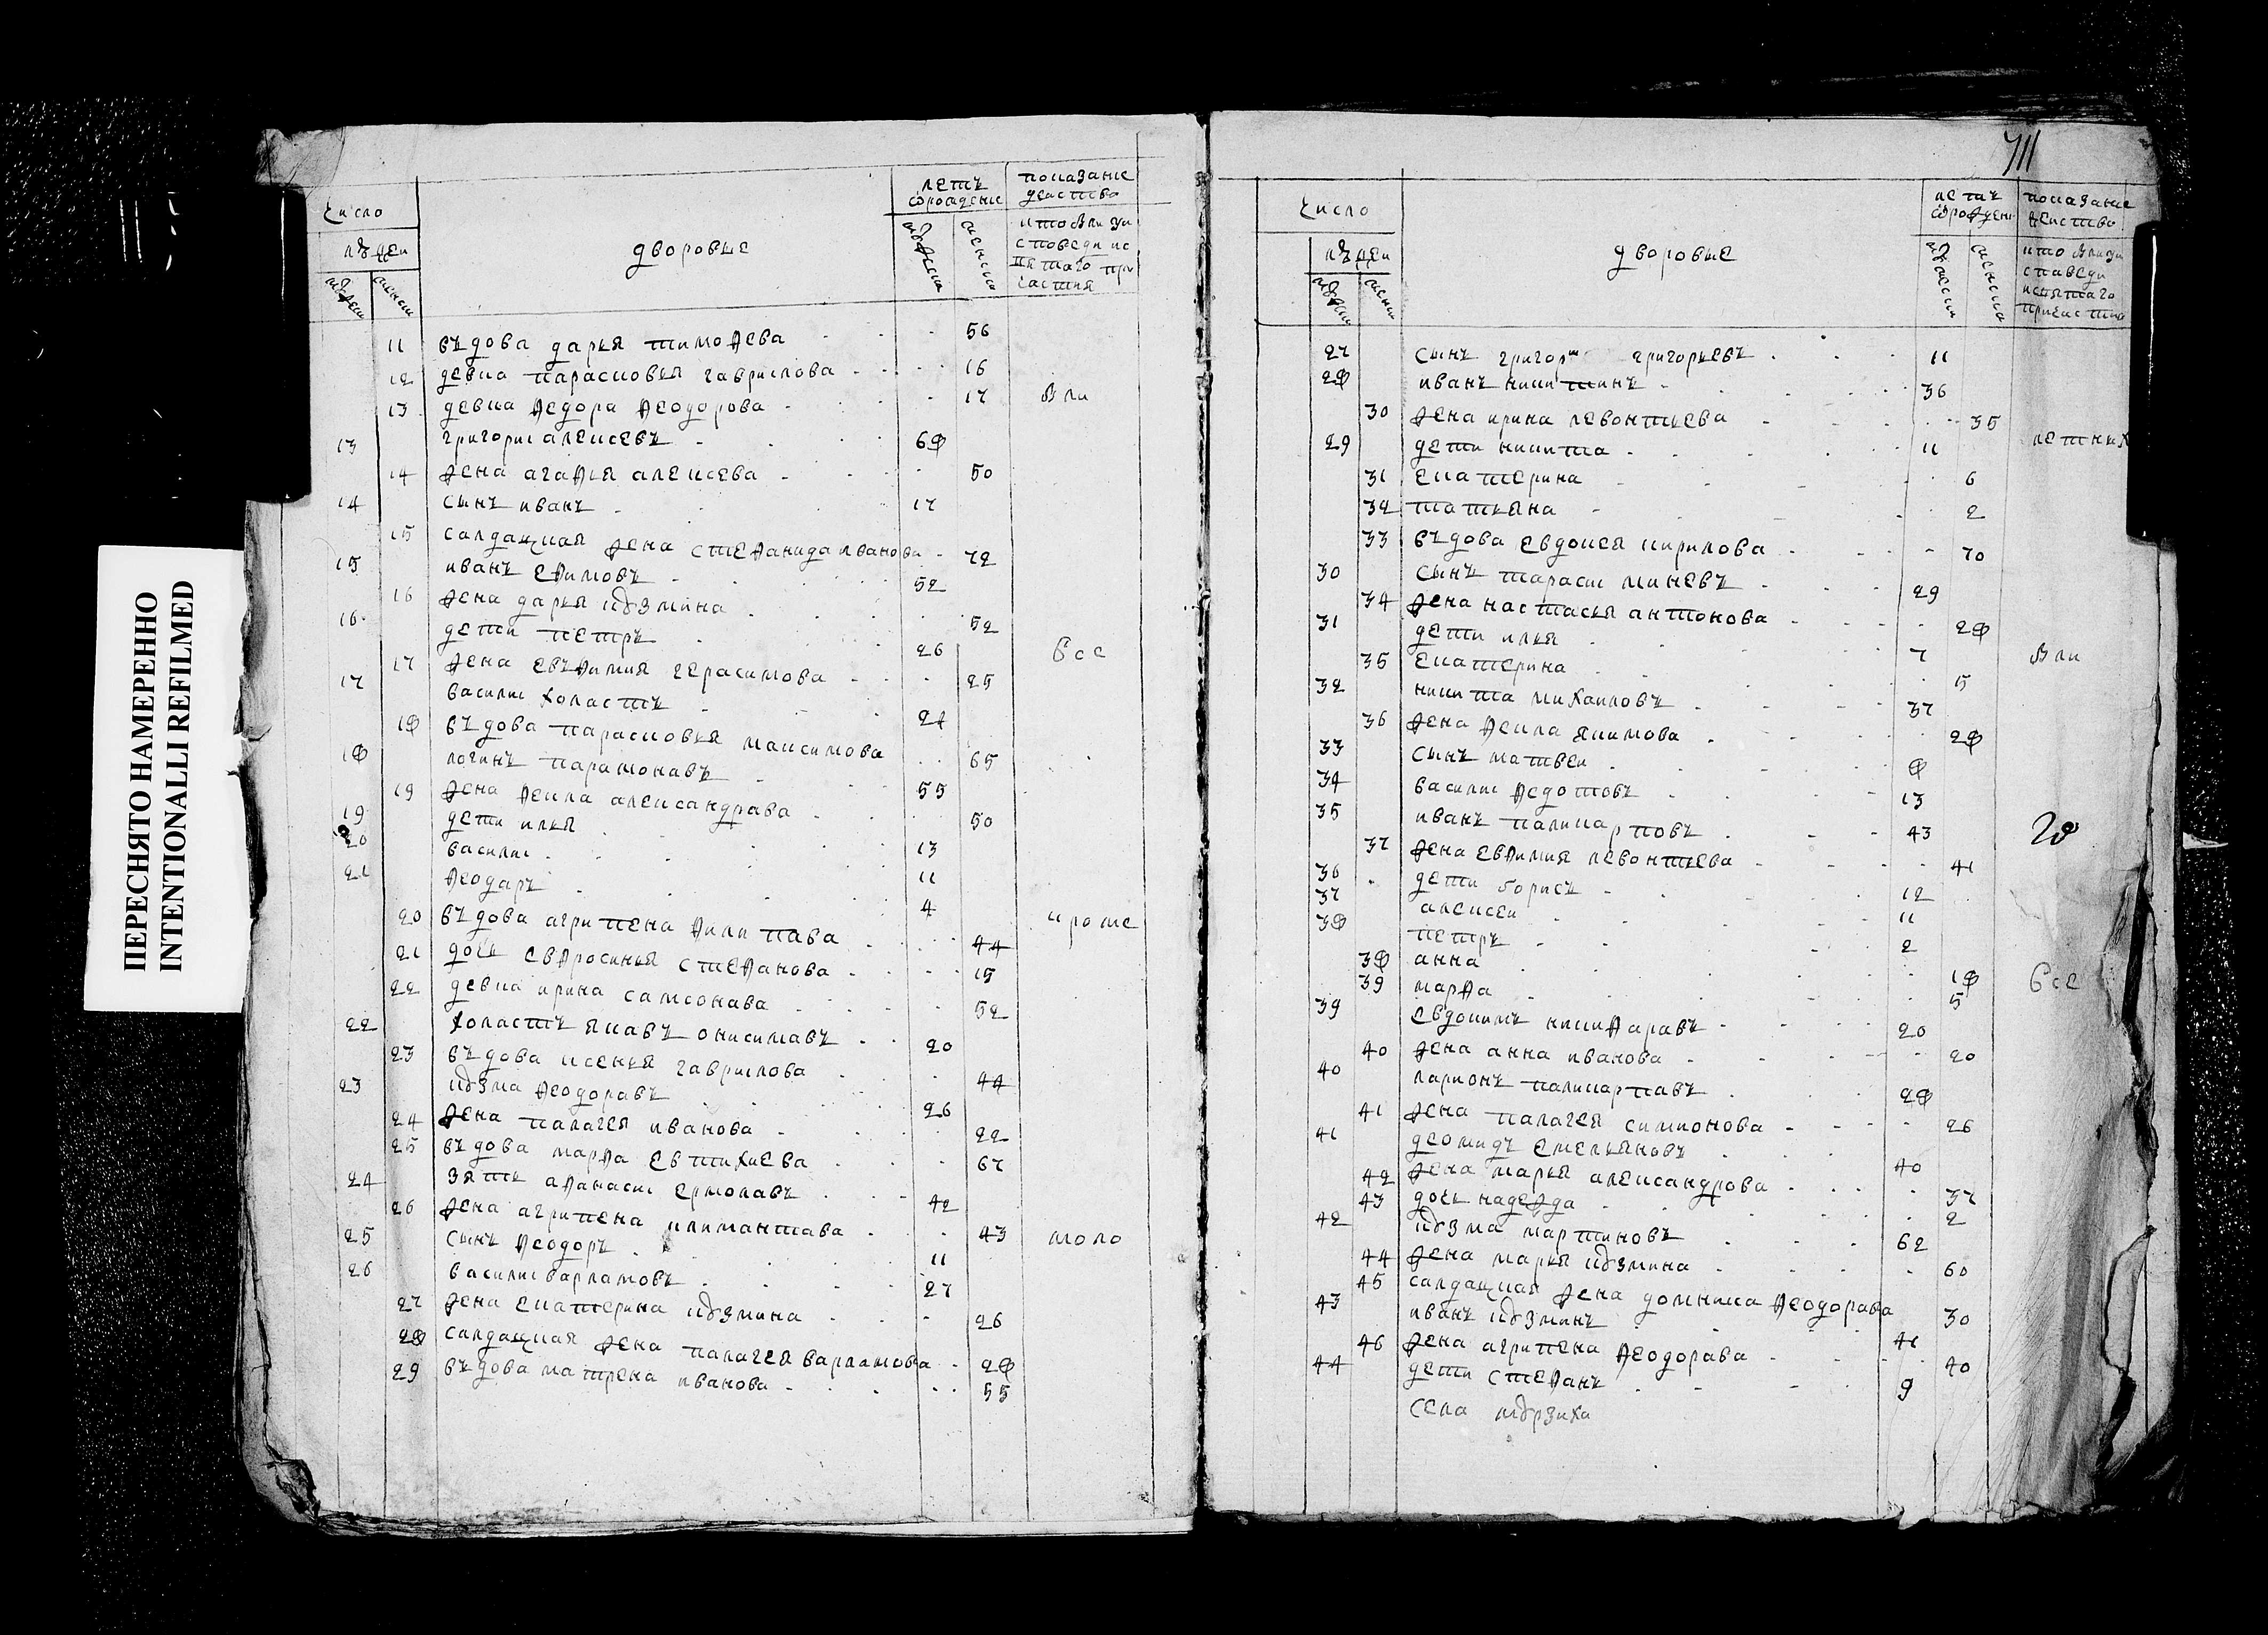 ПЕРЕСНЯТО НАМЕРЕННО
INTENTIONALLI REFILMED
число
людеи
мужеска
женска
дворовые
летъ
ѿрождение
мужеска
женска
показание
действо
кто были уи
споведи ис
вятаго при
частия
11 въдова дарья тимоѳева 56
12 девка парасковья гаврилова 16
13 девка ѳедора ѳеодорова 17 были
13 григори алексевъ 68
14 жена агаѳья алексева 50
14 сынъ иванъ 17
15 салдацкая жена стеѳанида иванова 72
15 иванъ еѳимовъ 52
16 жена дарья кузмина 52
16 дети петръ 26
17 жена евъѳимия герасимова 25 все
17 василии холастъ 24
18 въдова парасковья максимова 65
18 логинъ парамонавъ 55
19 жена ѳекла александрава 50
19 дети илья 13
20 василии 11
21 ѳеодаръ 4
20 въдова агрипена ѳилипава 44 кроме
21 дочь евѳросинья стеѳанова 15
22 девка ирина самсонава 52
22 холастъ яковъ онисимавъ 20
23 въдова ксенья гаврилова 44
23 кузма ѳеодоравъ 26
24 жена палагея иванова 22
25 въдова марѳа евтихиева 67
24 зять аѳанаси ермолавъ 42
26 жена агрипена климантава 43
25 сынъ ѳеодоръ 11 моло
26 василии варламовъ 27
27 жена екатерина кузмина 26
28 салдацкая жена палагея варламовва 28
29 въдова матрена иванова 55
711
число
людеи
мужеска
женска
дворовые
летъ
ѿрождени
мужеска
женска
показание
действо
кто были уи
споведи
исвятаго
причастия
27 сынъ григори григорьевъ 11
28 иванъ никитинъ 36
30 жена ирина левонтьева 35
29 дети никита 11 летных
31 екатерина 6
32 татьяна 2
33 въдова евдокея кирилова 70
30 сынъ тараси миневъ 29
34 жена настасья антонова 28
31 дети илья 7
35 екатерина 5 были
32 никита михаиловъ 37
36 жена ѳекла якимова 28
33 сынъ матвеи 8
34 василии ѳедотовъ 13
35 иванъ паликарповъ 43
37 жена евѳимия левонтьева 41
36 дети борисъ 12
37 алексеи 11
38 петръ 2
38 анна 18
39 марѳа 5 все
39 евдокимъ никиѳаравъ 20
40 жена анна иванова 20
40 ларионъ паликарпавъ 28
41 жена палагея симионова 26
41 деомидъ емельяновъ 40
42 жена марья александрова 37
43 дочь надежда 2
42 кузма мартиновъ 62
44 жена марья кузмина 60
45 салдацкая жена домника ѳеодорава 30
43 иванъ кузминъ 41
46 жена агрипена ѳеодорава 40
44 дети стеѳанъ 9
села мурзиха